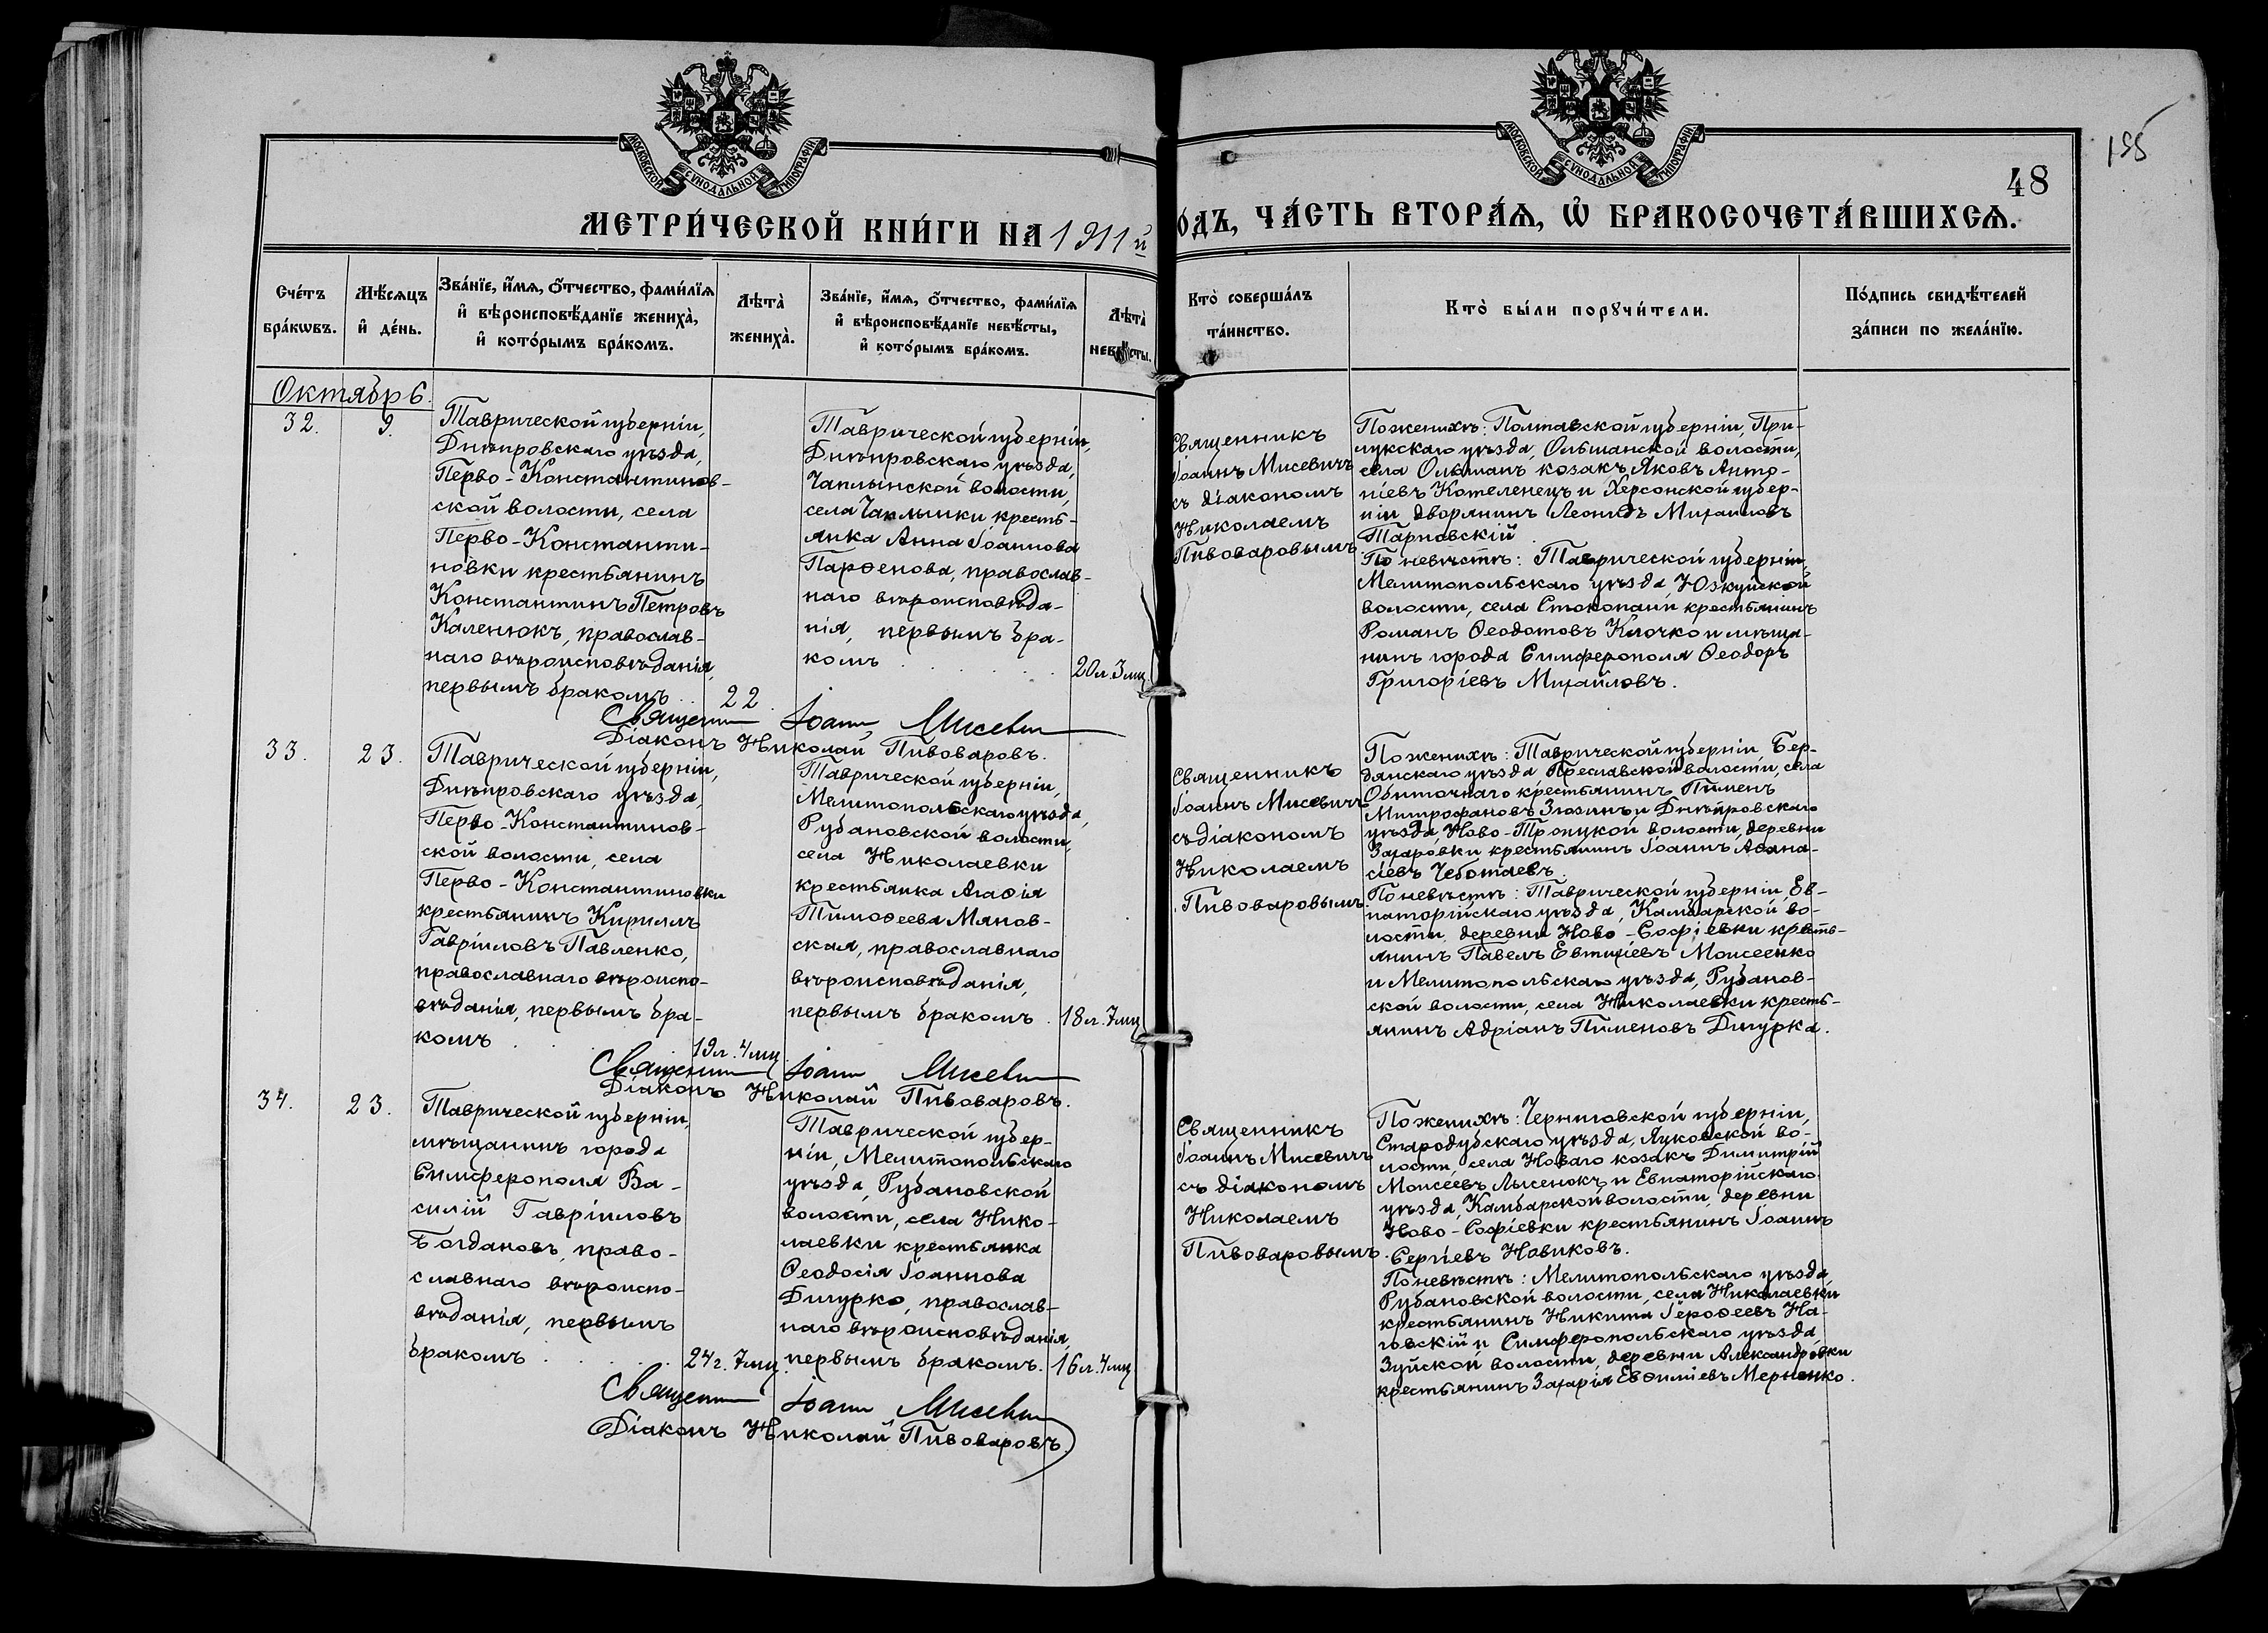 МОСКОВСКОЙ СУНОДАЛЬНОЙ ТИПОГРАФІИ
МОСКОВСКОЙ СУНОДАЛЬНОЙ ТИПОГРАФІИ
155
48
МЕТРИ́ЧЕСКОЙ КНИ́ГИ НА 1911й
О́ДЪ, ЧА́СТЬ ВТОРА́Я, Ѡ БРАКОСОЧЕТА́ВШИХСЯ.
Сче́тъ
бра́кωвъ.
Мѣ́сяцъ
и҆ де́нь.
Зва́нїе, и҆́мя, о҆́тчество, фами́лїя
и҆ вѣроисповѣ́данїе жениха̀,
и҆ кото́рымъ бра́комъ.
Лѣта̀
жениха̀.
Зва́нїе, и҆́мя, о҆́тчество, фами́лїя
и҆ вѣроисповѣ́данїе невѣ́сты,
и҆ кото́рымъ бра́комъ.
Лѣта̀
невѣ́сты.
Кто̀ соверша́лъ
та́инство.
Кто̀ бы́ли порꙋчи́тели.
По́дпись свидѣ́телей
за́писи по жела́нїю.
Октябрь.
32.
9.
Таврической губерніи,
Днѣпровскаго уѣзда,
Перво-Константинов-
ской волости, села
Перво-Константи-
новки крестьянинъ
Константинъ Петровъ
Каленюкъ, православ-
наго вѣроисповѣданія,
первымъ бракомъ
22
Таврической губерніи,
Днѣпровскаго уѣзда,
Чаплынской волости,
села Чаплынки кресть-
янка Анна Іоаннова
Парѳенова, православ-
наго вѣроисповѣда-
нія, первымъ бра-
комъ
20л.3мц.
Священникъ
Іоаннъ Мисевичъ
съ діакономъ
Николаемъ
Пивоваровымъ
По женихѣ: Полтавской губерніи, При-
лукскаго уѣзда, Ольшанской волости,
села Ольшанъ козакъ Яковъ Анто-
ніевъ Котеленецъ и Херсонской губер-
ніи дворянинъ Леонидъ Михаиловъ
Тарновскій
По невѣстѣ: Таврической губерніи,
Мелитопольскаго уѣзда, Юзкуйской
волости, села Стокопани крестьянинъ
Романъ Ѳеодотовъ Клочко и мѣща-
нинъ города Симферополя Ѳеодоръ
Григоріевъ Михайловъ.
Священникъ Іоаннъ Мисевичъ
Діаконъ Николай Пивоваровъ.
33.
23.
Таврической губерніи,
Днѣпровскаго уѣзда,
Перво-Константинов-
ской волости, села
Перво-Константиновки
крестьянинъ Кириллъ
Гавріиловъ Павленко,
православнаго вѣроиспо-
вѣданія, первымъ бра-
комъ
19л.4мц.
Таврической губерніи,
Мелитопольскаго уѣзда,
Рубановской волости,
села Николаевки
крестьянка Агаѳія
Тимоѳеева Манов-
ская, православнаго
вѣроисповѣданія,
первымъ бракомъ.
18л.7мц.
Священникъ
Іоаннъ Мисевичъ
съ діакономъ
Николаемъ
Пивоваровымъ
По женихѣ: Таврической губерніи Бер-
дянскаго уѣзда, Преславской волости, села
Обиточнаго крестьянинъ Пименъ
Митрофановъ и Днѣпровскаго
уѣзда, Ново-Троицкой волости, деревни
Захаровки крестьянинъ Іоаннъ Аѳана-
сіевъ Чеботаевъ.
По невѣстѣ: Таврической губерніи, Ев-
паторійскаго уѣзда, Камбарской во-
лости, деревни Ново-Софіевки кресть-
янинъ Павелъ Евтихіевъ Моисеенко
и Мелитопольскаго уѣзда, Рубанов-
ской волости, села Николаевки кресть-
янинъ Адріанъ Пименовъ Дигурка.
Священникъ Іоаннъ Мисевичъ
Діаконъ Николай Пивоваровъ.
34.
23.
Таврической губерніи,
мѣщанинъ города
Симферополя Ва-
силій Гавріиловъ
Богдановъ, право-
славнаго вѣроиспо-
вѣданія, первымъ
бракомъ
24г.7мц.
Таврической губер-
ніи, Мелитопольскаго
уѣзда, Рубановской
волости, села Нико-
лаевки крестьянка
Ѳеодосія Іоаннова
Дигурко, православ-
наго вѣроисповѣданія,
первымъ бракомъ.
16л.4мц.
Священникъ
Іоаннъ Мисевичъ
съ діакономъ
Николаемъ
Пивоваровымъ.
По женихѣ: Черниговской губерніи,
Стародубскаго уѣзда, Луковской во-
лости, села Новаго козакъ Димитрій
Моисеевъ Лысенокъ и Евпаторійскаго
уѣзда, Камбарской волости, деревни
Ново-Софіевки крестьянинъ Іоаннъ
Сергіевъ Новиковъ.
По невѣстѣ: Мелитопольскаго уѣзда,
Рубановской волости, села Николаевки
крестьянинъ Никита Іероѳеевъ На-
говскій и Симферопольскаго уѣзда,
Зуйской волости, деревни Александровки
крестьянинъ Захарія Евѳиміевъ Мерненко.
Священникъ Іоаннъ Мисевичъ
Діаконъ Николай Пивоваровъ.